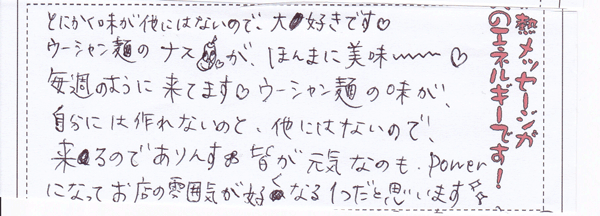 とにかく味が他にはないので、大好きです♡
ウーシャン麺のナスが、ほんまに美味〜〜〜♡
毎週のように来てます♡ウーシャン麺の味が、
自分には作れないのと、他にはないので、
来るのでありんす 皆が元気なのも、Power
になってお店の雰囲気が好くなる1つだと思います
熱メッセージが
のエネルギーです!